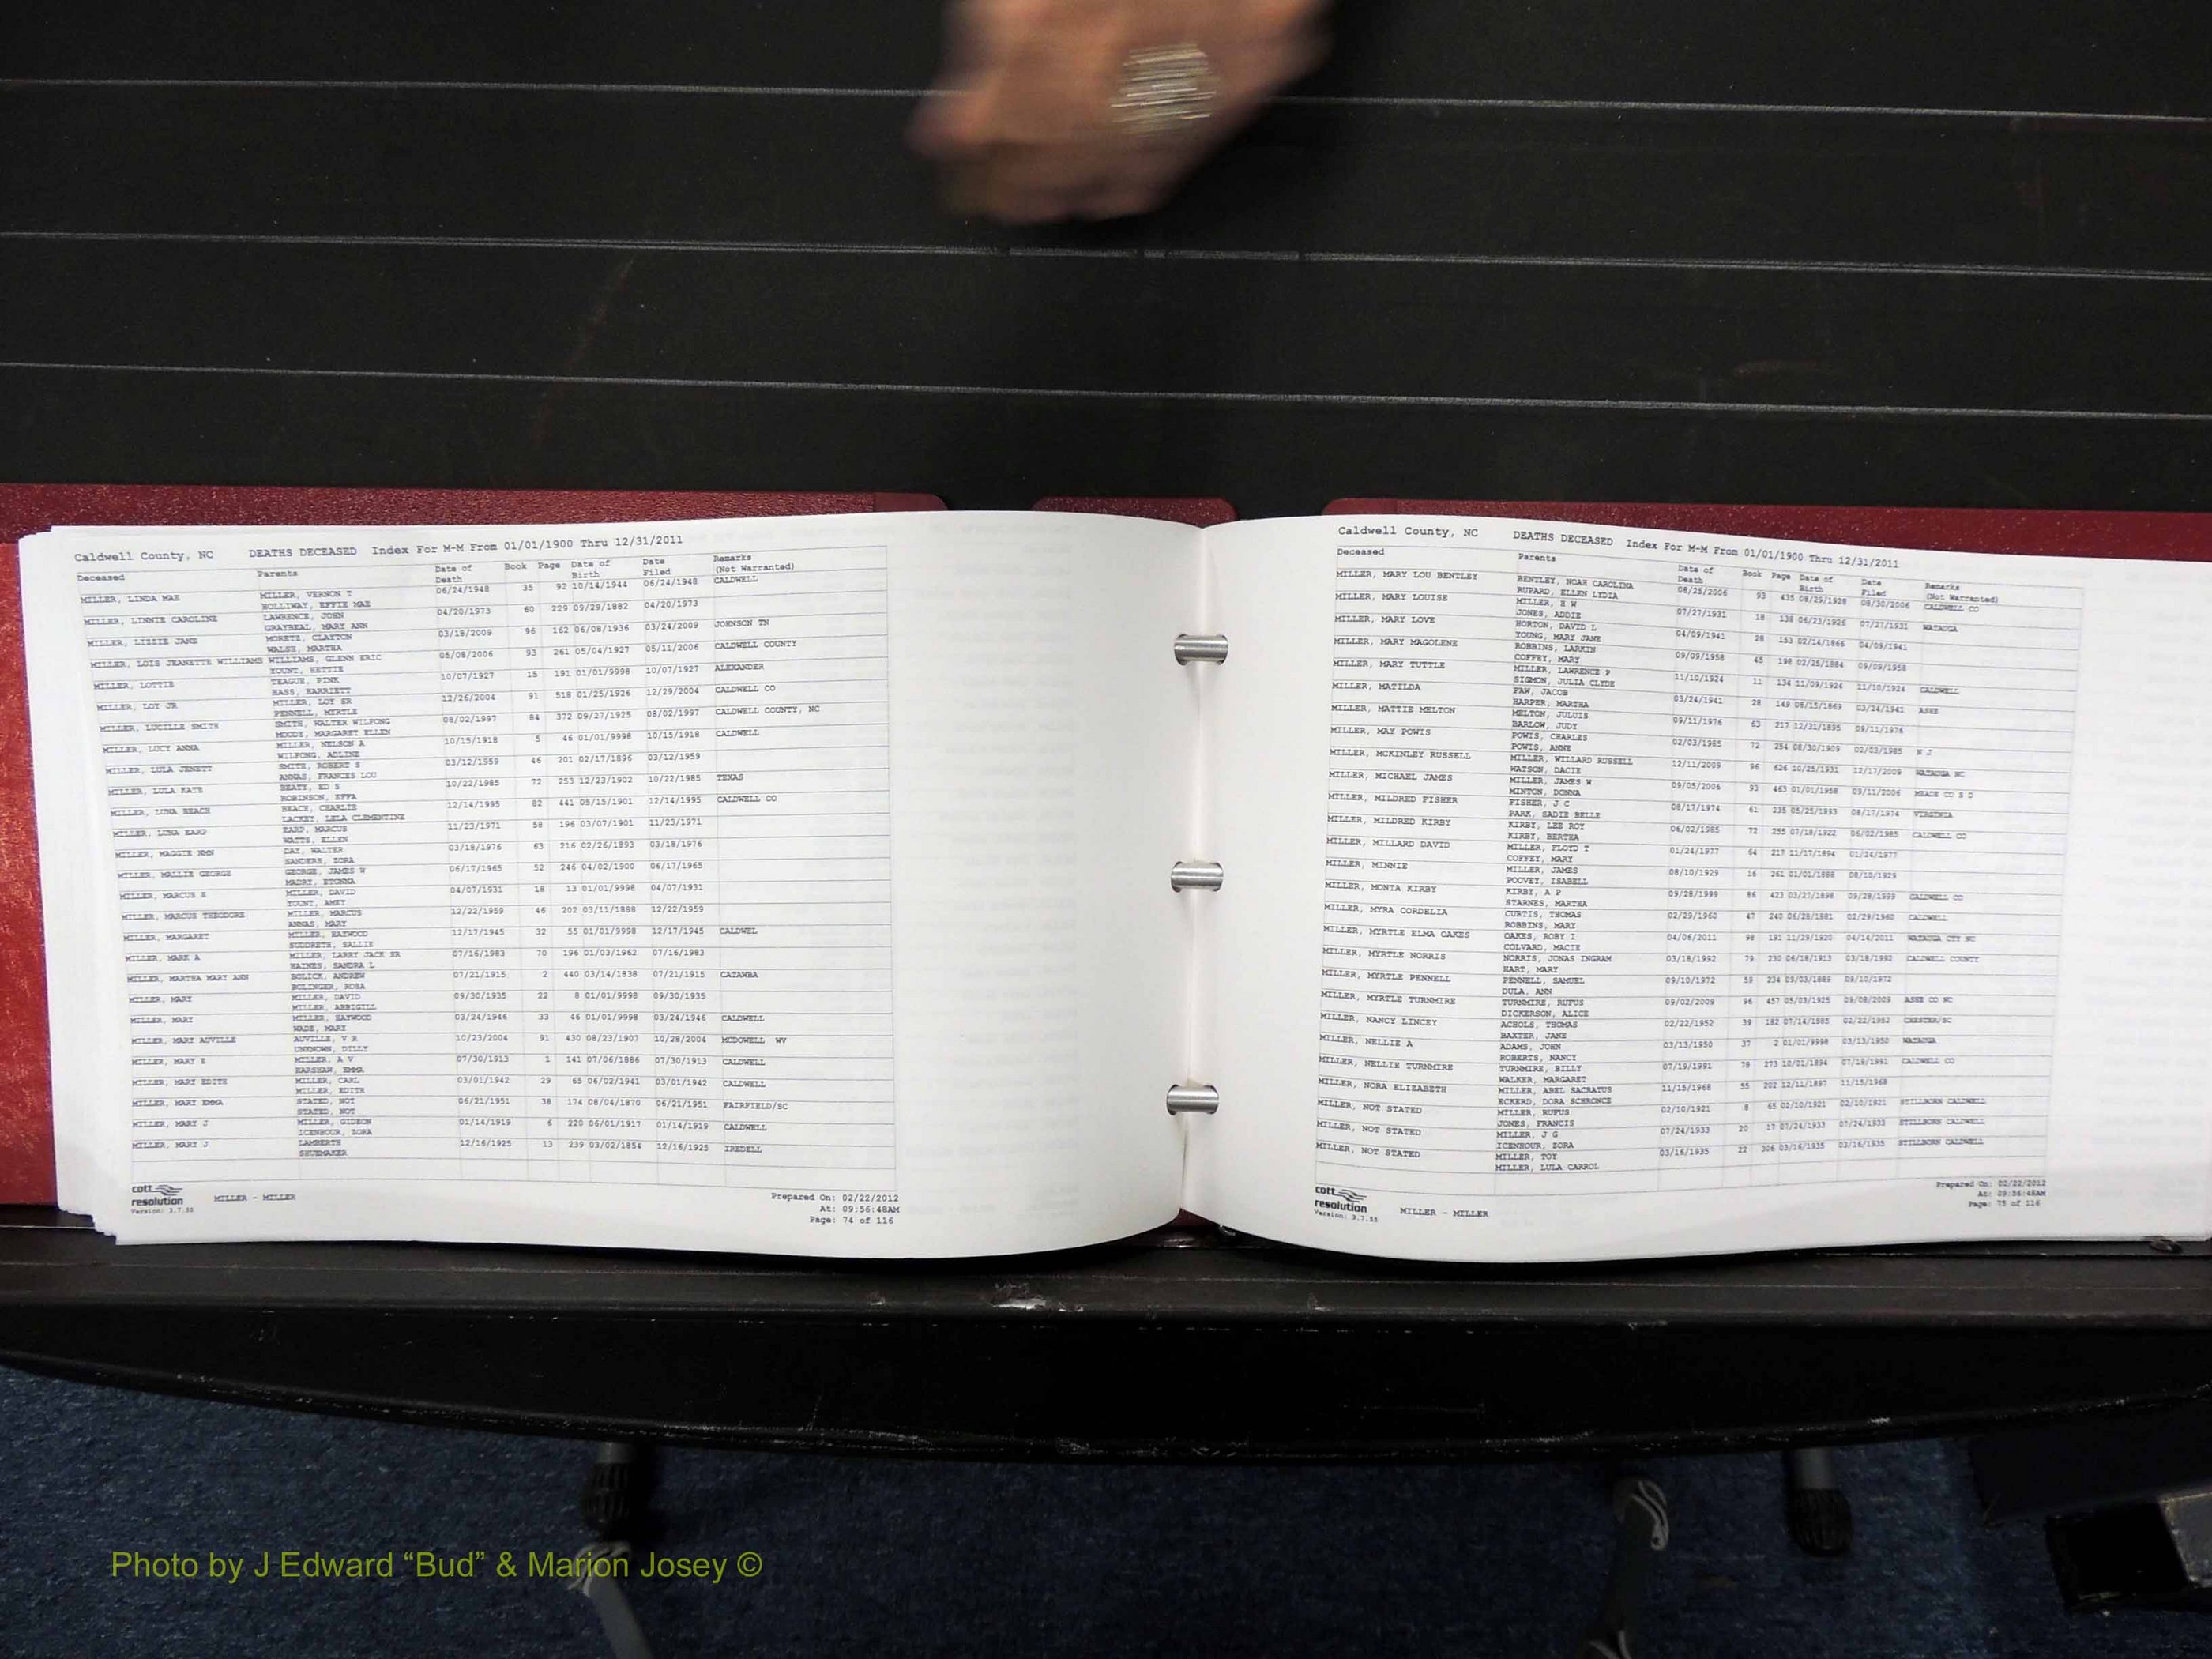 Caldwell County, NC DEATHS DECEASED Index For M-M From 01/01/1900 Thru 12/31/2011
Deceased Parents Date of Death Book Page Date of Birth Date Filed Remarks (Not Warranted)
MILLER, LINDA MAE MILLER, VERNON T 06/24/1948 35 92 10/14/1944 06/24/1948 CALDWELL
HOLLIWAY, EFFIE MAE
MILLER, LINNIE CAROLINE LAWRENCE, JOHN 04/20/1973 60 229 09/29/1882 04/20/1973
GRAYBEAL, MARY ANN
MILLER, LIZZIE JANE MORETZ, CLAYTON 03/18/2009 96 162 06/08/1936 03/24/2009 JOHNSON TN
WALSH, MARTHA
MILLER, LOIS JEANETTE WILLIAMS WILLIAMS, GLENN ERIC 05/08/2006 93 261 05/04/1927 05/11/2006 CALDWELL COUNTY
YOUNT, HETTIE
MILLER, LOTTIE TEAGUE, PINK 10/07/1927 15 191 01/01/9998 10/07/1927 ALEXANDER
HASS, HARRIETT
MILLER, LOY JR MILLER, LOY SR 12/26/2004 91 518 01/25/1926 12/29/2004 CALDWELL CO
PENNELL, MYRTLE
MILLER, LUCILLE SMITH SMITH, WALTER WILFONG 08/02/1997 84 372 09/27/1925 08/02/1997 CALDWELL COUNTY, NC
MOODY, MARGARET ELLEN
MILLER, LUCY ANNA MILLER, NELSON A 10/15/1918 5 46 01/01/9998 10/15/1918 CALDWELL
WILFONG, ADLINE
MILLER, LULA JENETT SMITH, ROBERT S 03/12/1959 46 201 02/17/1896 03/12/1959
ANNAS, FRANCES LOU
MILLER, LULA KATE BEATY, ED S 10/22/1985 72 253 12/23/1902 10/22/1985 TEXAS
ROBINSON, EFFA
MILLER, LUNA BEACH BEACH, CHARLIE 12/14/1995 82 441 05/15/1901 12/14/1995 CALDWELL CO
LACKEY, LELA CLEMENTINE
MILLER, LUNA EARP EARP, MARCUS 11/23/1971 58 196 03/07/1901 11/23/1971
WATTS, ELLEN
MILLER, MAGGIE NMN DAY, WALTER 03/18/1976 63 216 02/26/1893 03/18/1976
SANDERS, ZORA
MILLER, MALLIE GEORGE GEORGE, JAMES W 06/17/1965 52 246 04/02/1900 06/17/1965
MADRY, ETONNA
MILLER, MARCUS E MILLER, DAVID 04/07/1931 18 13 01/01/9998 04/07/1931
YOUNT, AMEY
MILLER, MARCUS THEODORE MILLER, MARCUS 12/22/1959 46 202 03/11/1888 12/22/1959
ANNAS, MARY
MILLER, MARGARET MILLER, HAYWOOD 12/17/1945 32 55 01/01/9998 12/17/1945 CALDWEL
SUDDRETH, SALLIE
MILLER, MARK A MILLER, LARRY JACK SR 07/16/1983 70 196 01/03/1962 07/16/1983
HAINES, SANDRA L
MILLER, MARTHA MARY ANN BOLICK, ANDREW 07/21/1915 2 440 03/14/1838 07/21/1915 CATAWBA
BOLINGER, ROSA
MILLER, MARY MILLER, DAVID 09/30/1935 22 8 01/01/9998 09/30/1935
MILLER, ABBIGILL
MILLER, MARY MILLER, HAYWOOD 03/24/1946 33 46 01/01/9998 03/24/1946 CALDWELL
WADE, MARY
MILLER, MARY AUVILLE AUVILLE, V R 10/23/2004 91 430 08/23/1907 10/28/2004 MCDOWELL WV
UNKNOWN, DILLY
MILLER, MARY E MILLER, A V 07/30/1913 1 141 07/06/1886 07/30/1913 CALDWELL
HARSHAW, EMMA
MILLER, MARY EDITH MILLER, CARL 03/01/1942 29 65 06/02/1941 03/01/1942 CALDWELL
MILLER, EDITH
MILLER, MARY EMMA STATED, NOT 06/21/1951 38 174 08/04/1870 06/21/1951 FAIRFIELD/SC
STATED, NOT
MILLER, MARY J MILLER, GIDEON 01/14/1919 6 220 06/01/1917 01/14/1919 CALDWELL
ICENHOUR, ZORA
MILLER, MARY J LAMBERTH 12/16/1925 13 239 03/02/1854 12/16/1925 IREDELL
SHUEMAKER
cott resolution
Version: 3.7.55
MILLER - MILLER
Prepared On: 02/22/2012
At: 09:56:48AM
Page: 74 of 116
Caldwell County, NC DEATHS DECEASED Index For M-M From 01/01/1900 Thru 12/31/2011
Deceased Parents Date of Death Book Page Date of Birth Date Filed Remarks (Not Warranted)
MILLER, MARY LOU BENTLEY BENTLEY, NOAH CAROLINA 08/25/2006 93 435 08/29/1928 08/30/2006 CALDWELL CO
RUPARD, ELLEN LYDIA
MILLER, MARY LOUISE MILLER, H W 07/27/1931 18 138 06/23/1926 07/27/1931 WATAUGA
JONES, ADDIE
MILLER, MARY LOVE HORTON, DAVID L 04/09/1941 28 153 02/14/1866 04/09/1941
YOUNG, MARY JANE
MILLER, MARY MAGOLENE ROBBINS, LARKIN 09/09/1958 45 198 02/25/1884 09/09/1958
COFFEY, MARY
MILLER, MARY TUTTLE MILLER, LAWRENCE P 11/10/1924 11 134 11/09/1924 11/10/1924 CALDWELL
SIGMON, JULIA CLYDE
MILLER, MATILDA FAW, JACOB 03/24/1941 28 149 08/15/1869 03/24/1941 ASHE
HARPER, MARTHA
MILLER, MATTIE MELTON MELTON, JULUIS 09/11/1976 63 217 12/31/1895 09/11/1976
BARLOW, JUDY
MILLER, MAY POWIS POWIS, CHARLES 02/03/1985 72 254 08/30/1909 02/03/1985 N J
POWIS, ANNE
MILLER, MCKINLEY RUSSELL MILLER, WILLARD RUSSELL 12/11/2009 96 626 10/25/1931 12/17/2009 WATAUGA NC
WATSON, DACIE
MILLER, MICHAEL JAMES MILLER, JAMES W 09/05/2006 93 463 01/01/1958 09/11/2006 MEADE CO S D
MINTON, DONNA
MILLER, MILDRED FISHER FISHER, J C 08/17/1974 61 235 05/25/1893 08/17/1974 VIRGINIA
PARK, SADIE BELLE
MILLER, MILDRED KIRBY KIRBY, LEE ROY 06/02/1985 72 255 07/18/1922 06/02/1985 CALDWELL CO
KIRBY, BERTHA
MILLER, MILLARD DAVID MILLER, FLOYD T 01/24/1977 64 217 11/17/1894 01/24/1977
COFFEY, MARY
MILLER, MINNIE MILLER, JAMES 08/10/1929 16 261 01/01/1888 08/10/1929
POOVEY, ISABELL
MILLER, MONTA KIRBY KIRBY, A P 09/28/1999 86 423 03/27/1898 09/28/1999 CALDWELL CO
STARNES, MARTHA
MILLER, MYRA CORDELIA CURTIS, THOMAS 02/29/1960 47 240 06/28/1881 02/29/1960 CALDWELL
ROBBINS, MARY
MILLER, MYRTLE ELMA OAKES OAKES, ROBY I 04/06/2011 98 191 11/29/1920 04/14/2011 WATAUGA CTY NC
COLVARD, MACIE
MILLER, MYRTLE NORRIS NORRIS, JONAS INGRAM 03/18/1992 79 230 06/18/1913 03/18/1992 CALDWELL COUNTY
HART, MARY
MILLER, MYRTLE PENNELL PENNELL, SAMUEL 09/10/1972 59 234 09/03/1889 09/10/1972
DULA, ANN
MILLER, MYRTLE TURNMIRE TURNMIRE, RUFUS 09/02/2009 96 457 05/03/1925 09/08/2009 ASHE CO NC
DICKERSON, ALICE
MILLER, NANCY LINCEY ACHOLS, THOMAS 02/22/1952 39 182 07/14/1885 02/22/1952 CHESTER/SC
BAXTER, JANE
MILLER, NELLIE A ADAMS, JOHN 03/13/1950 37 2 01/01/9998 03/13/1950 WATAUGA
ROBERTS, NANCY
MILLER, NELLIE TURNMIRE TURNMIRE, BILLY 07/19/1991 78 273 10/01/1894 07/19/1991 CALDWELL CO
WALKER, MARGARET
MILLER, NORA ELIZABETH MILLER, ABEL SACRATUS 11/15/1968 55 202 12/11/1897 11/15/1968
ECKERD, DORA SCHRONCE
MILLER, NOT STATED MILLER, RUFUS 02/10/1921 8 65 02/10/1921 02/10/1921 STILLBORN CALDWELL
JONES, FRANCIS
MILLER, NOT STATED MILLER, J G 07/24/1933 20 17 07/24/1933 07/24/1933 STILLBORN CALDWELL
ICENHOUR, ZORA
MILLER, NOT STATED MILLER, TOY 03/16/1935 22 306 03/16/1935 03/16/1935 STILLBORN CALDWELL
MILLER, LULA CARROL
cott resolution
Version: 3.7.55
MILLER - MILLER
Prepared On: 02/22/2012
At: 09:56:48AM
Page: 75 of 116
Photo by J Edward “Bud” & Marion Josey ©